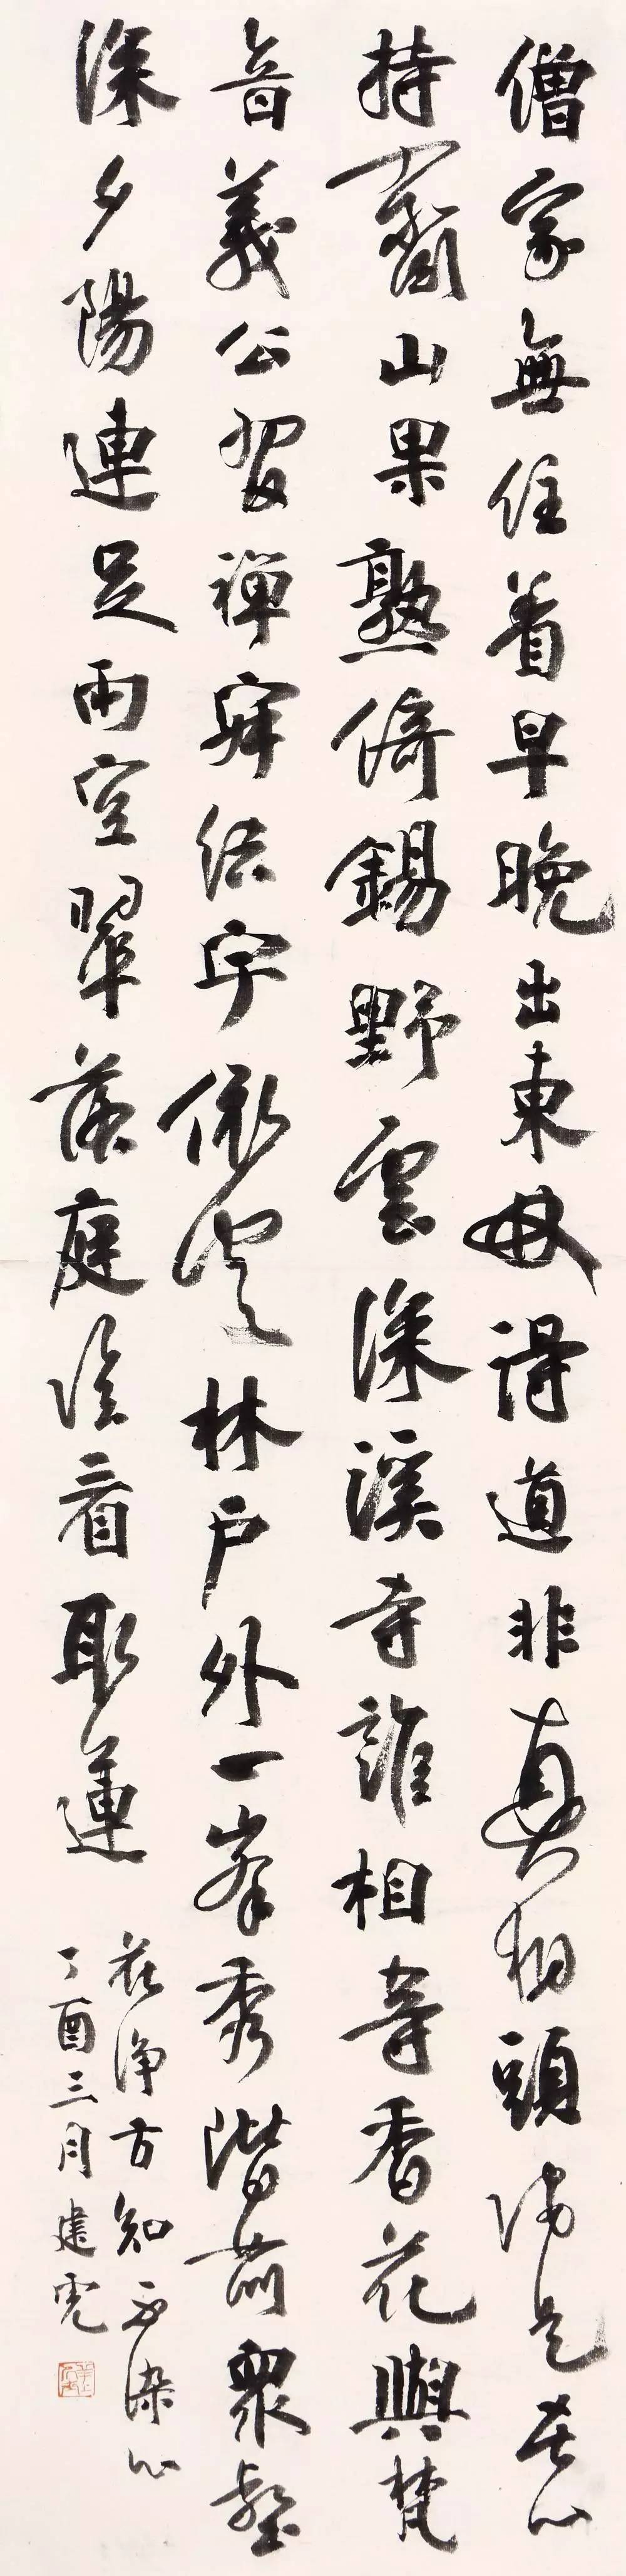 僧家無住着早晚出東林得道非真相頭陀是苦心
持齋山果熟倚錫野雲深溪寺誰相待香花與梵
音義公習禪寂結宇依空林户外一峯秀階前眾壑
深夕陽連足雨空翠落庭陰看取蓮
花净方知不染心
丁酉三月建